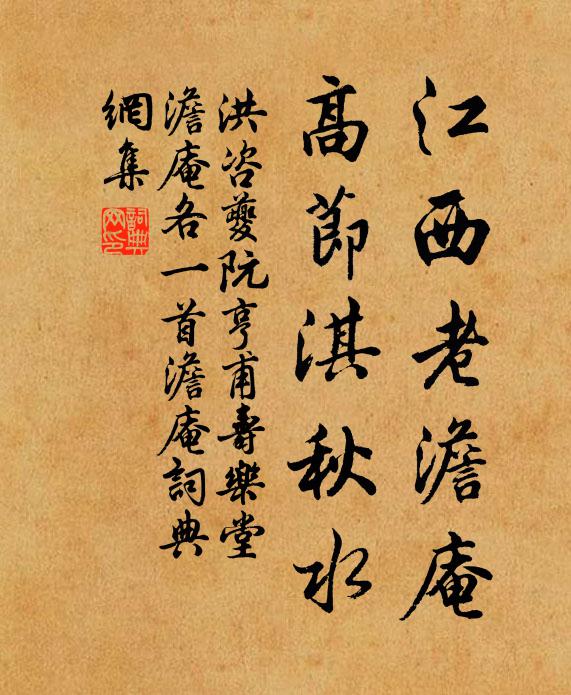 江西老澹庵
高節淇秋水
洪咨夔阮亨甫壽樂堂
澹庵各一首澹庵詞典
網集
詞典網印